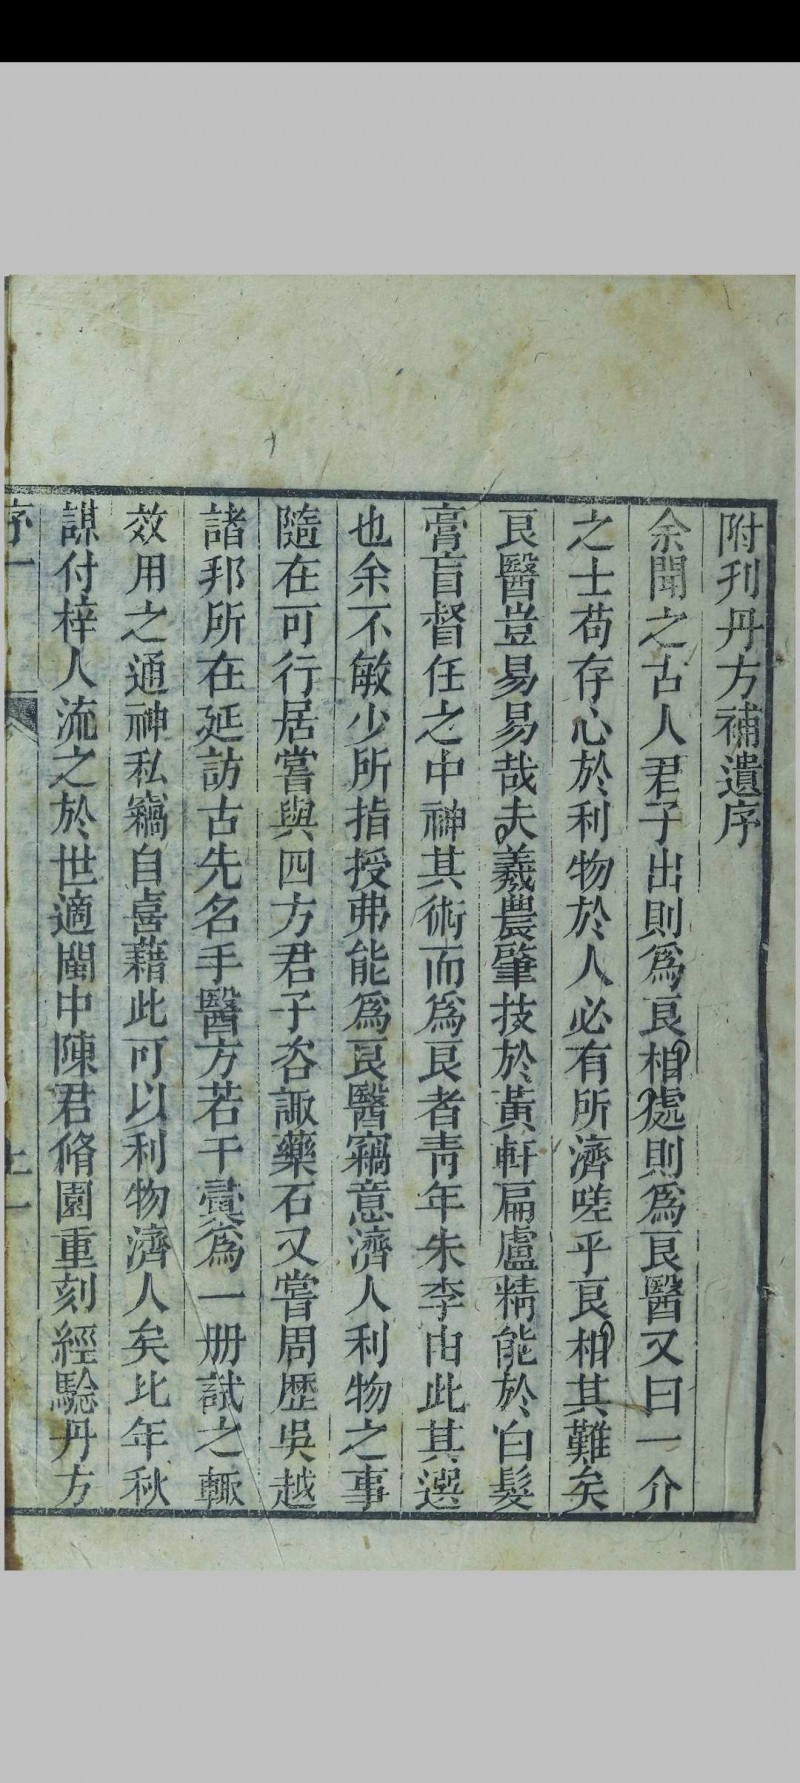 附刋丹方補遺序
余聞之古人君子出則爲良相處則爲良醫又曰一介
之士苟存心於利物於人必有所濟嗟乎良相其難矣
良醫豈易易哉夫羲農肇技於黃軒扁盧精能於白髮
膏肓督任之中神其術而爲良者靑年朱李由此其選
也余不敏少所指授弗能爲良醫竊意濟人利物之事
隨在可行居嘗與四方君子咨諏藥石又嘗周歷吳越
諸邦所在延訪古先名手醫方若干彚爲一册試之輙
效用之通神私竊自喜藉此可以利物濟人矣比年秋
謀付梓人流之於世適閩中陳君脩園重刻經騐丹方
序一
上一